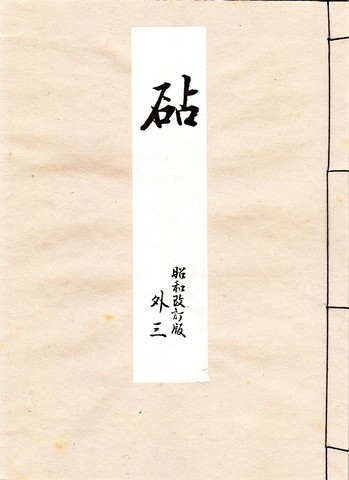 砧
昭和改訂版
外三